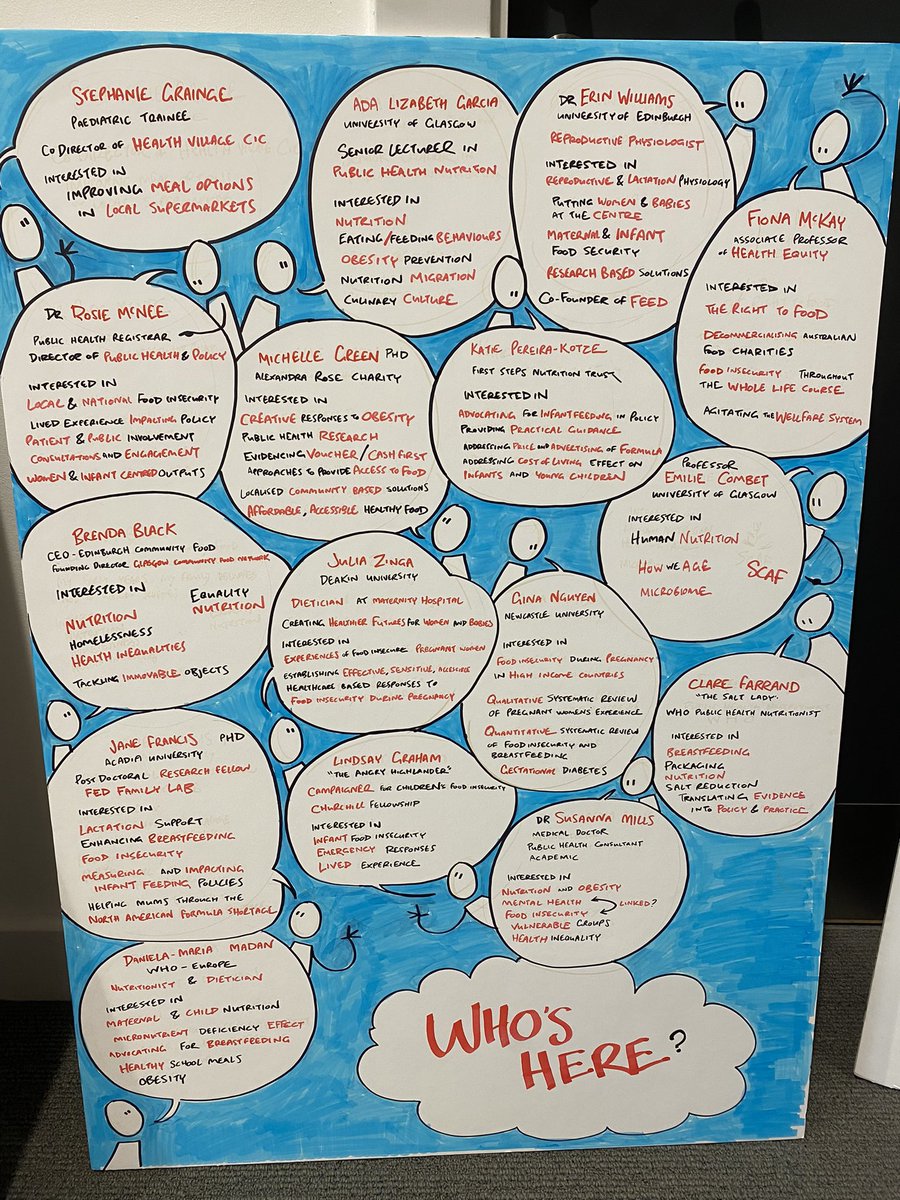 STEPHANIE GRAINGE
PAEDIATRIC TRAINEE
CO DIRECTOR OF HEALTH VILLAGE CIC
INTERESTED IN
IMPROVING MEAL OPTIONS
IN LOCAL SUPERMARKETS
ADA LIZABETH GARCIA
UNIVERSITY OF GLASGOW
SENIOR LECTURER IN
PUBLIC HEALTH NUTRITON
INTERESTED IN
NUTRITION
EATING/FEEDING BEHAVIOURS
OBESITY PREVENTION
NUTRITION MIGRATION
CULINARY CULTURE
DR ERIN WILLIAMS
UNIVERSITY OF EDINBURGH
REPRODUCTIVE PHYSIOLOGIST
INTERESTED IN
REPRODUCTIVE & LACTATION PHYSIOLOGY
PUTTING WOMEN & BABIES
AT THE CENTRE
MATERNAL & INFANT
FOOD SECURITY
RESEARCH BASED SOLUTIONS
CO-FOUNDER OF FEED
FIONA MCKAY
ASSOCIATE PROFESSOR
OF HEALTH EQUITY
INTERESTED IN
THE RIGHT TO FOOD
DECOMMERCIALISING AUSTRALIAN
FOOD CHARITIES
FOOD INSECURITY THROUGHOUT
THE WHOLE LIFE COURSE
AGITATING THE WELFARE SYSTEM
DR ROSIE MCNEE
PUBLIC HEALTH REGISTRAR
DIRECTOR OF PUBLIC HEALTH & POLICY
INTERESTED IN
LOCAL & NATIONAL FOOD INSECURITY
LIVED EXPERIENCE IMPACTING POLICY
PATIENT & PUBLIC INVOLVEMENT
CONSULTATIONS AND ENGAGEMENT
WOMEN & INFANT CENTRED OUTPUTS
MICHELLE GREEN PHD
ALEXANDRA ROSE CHARITY
INTERESTED IN
CREATIVE RESPONSES TO OBESITY
PUBLIC HEALTH RESEARCH
EVIDENCING VOUCHER/CASH FIRST
APPROACHES TO PROVIDE ACCESS TO FOOD
LOCALISED COMMUNITY BASED SOLUTIONS
AFFORDABLE, ACCESSIBLE HEALTHY FOOD
KATIE PEREIRA-KOTZE
FIRST STEPS NUTRITION TRUST
INTERESTED IN
ADVOCATING FOR INFANT FEEDING IN POLICY
PROVIDING PRACTICAL GUIDANCE
ADDRESSING PRICE AND ADVERTISING OF FORMULA
ADDRESSING COST OF LIVING EFFECT ON
INFANTS AND YOUNG CHILDREN
PROFESSOR
EMILIE COMBET
UNIVERSITY OF GLASGOW
INTERESTED IN
HUMAN NUTRITION
HOW WE AGE SCAF
MICROBIOME
BRENDA BLACK
CEO - EDINBURGH COMMUNITY FOOD
FOUNDING DIRECTOR GLASGOW COMMUNITY FOOD NETWORK
INTERESTED IN EQUALITY
NUTRITION NUTRITION
HOMELESSNESS
HEALTH INEQUALITIES
TACKLING IMMOVABLE OBJECTS
JULIA ZINGA
DEAKIN UNIVERSITY
DIETICIAN AT MATERNITY HOSPITAL
CREATING HEALTHIER FUTURES FOR WOMEN AND BABIES
INTERESTED IN
EXPERIENCES OF FOOD INSECURE PREGNANT WOMEN
ESTABLISHING EFFECTIVE, SENSITIVE, ACCESSIBLE
HEALTHCARE BASED RESPONSES TO
FOOD INSECURITY DURING PREGNANCY
GINA NGUYEN
NEWCASTLE UNIVERSITY
INTERESTED IN
FOOD INSECURITY DURING PREGNANCY
IN HIGH INCOME COUNTRIES
QUALITATIVE SYSTEMATIC REVIEW
OF PREGNANT WOMENS' EXPERIENCE
QUANTITATIVE SYSTEMATIC REVIEW
OF FOOD INSECURITY AND
BREASTFEEDING
GESTATIONAL DIABETES
CLARE FARRAND
"THE SALT LADY"
WHO PUBLIC HEALTH NUTRITIONIST
INTERESTED IN
BREASTFEEDING
PACKAGING
NUTRITION
SALT REDUCTION
TRANSLATING EVIDENCE
INTO POLICY & PRACTICE
JANE FRANCIS PHD
ACADIA UNIVERSITY
POST DOCTORAL RESEARCH FELLOW
FED FAMILY LAB
INTERESTED IN
LACTATION SUPPORT
ENHANCING BREASTFEEDING
FOOD INSECURITY
MEASURING AND IMPACTING
INFANT FEEDING POLICIES
HELPING MUMS THROUGH THE
NORTH AMERICAN FORMULA SHORTAGE
LINDSAY GRAHAM
"THE ANGRY HIGHLANDER"
CAMPAIGNER FOR CHILDREN'S FOOD INSECURITY
CHURCHILL FELLOWSHIP
INTERESTED IN
INFANT FOOD INSECURITY
EMERGENCY RESPONSES
LIVED EXPERIENCE
DR SUSANNA MILLS
MEDICAL DOCTOR
PUBLIC HEALTH CONSULTANT
ACADEMIC
INTERESTED IN
NUTRITION AND OBESITY
MENTAL HEALTH LINKED?
FOOD INSECURITY
VULNERABLE GROUPS
HEALTH INEQUALITY
DANIELA-MARIA MADAN
WHO-EUROPE
NUTRITIONIST & DIETICIAN
INTERESTED IN
MATERNAL & CHILD NUTRITION
MICRONUTRIENT DEFICIENCY EFFECT
ADVOCATING FOR BREASTFEEDING
HEALTHY SCHOOL MEALS
OBESITY
WHO'S
HERE?